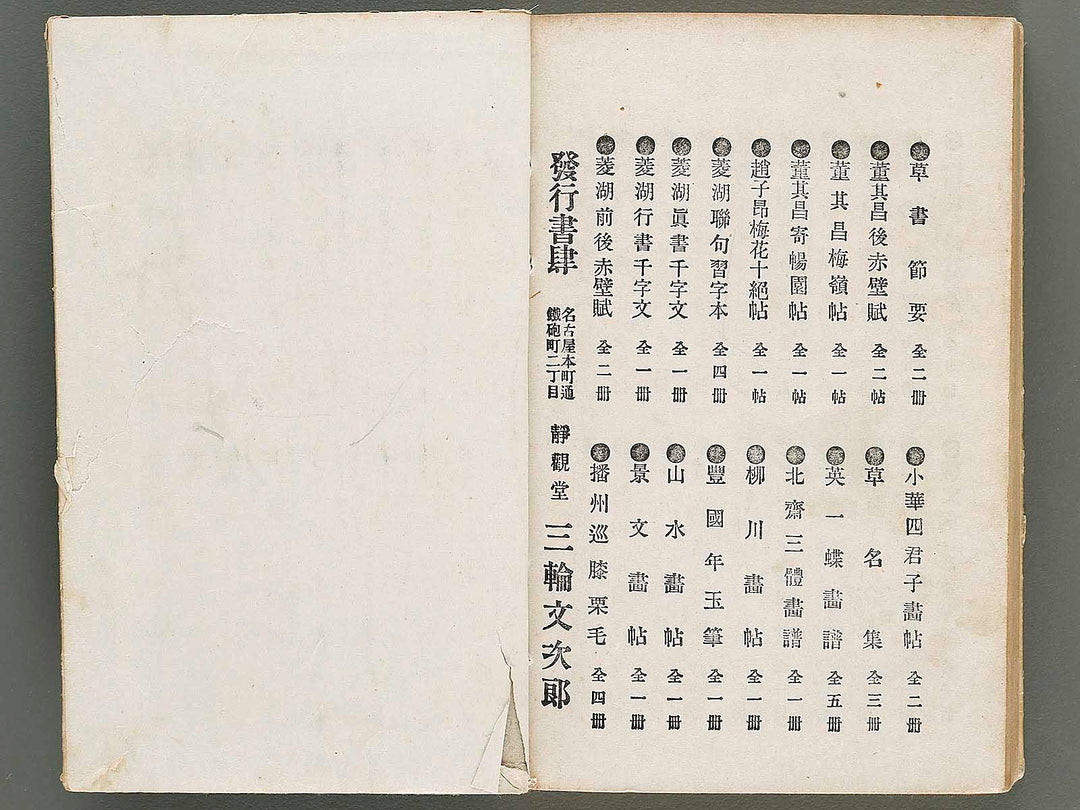 ●草書節要 全二冊
●董其昌後赤壁賦 全二帖
●董其昌梅嶺帖 全一帖
●董其昌寄暢園帖 全一帖
●趙子昂梅花十絕帖 全一帖
●菱湖聯句習字本 全四冊
●菱湖眞書千字文 全一冊
●菱湖行書千字文 全一冊
●菱湖前後赤壁賦 全二冊
●小華四君子畵帖 全二冊
●草名集 全三冊
●英一蝶畵譜 全五冊
●北齋三體畵譜 全一冊
●柳川畵帖 全一冊
●豐國年玉筆 全一冊
●山水畵帖 全一冊
●景文畵帖 全一冊
●播州巡膝栗毛 全四冊
發行書肆
名古屋本町通
鐵砲町二丁目
靜觀堂 三輪文次郎